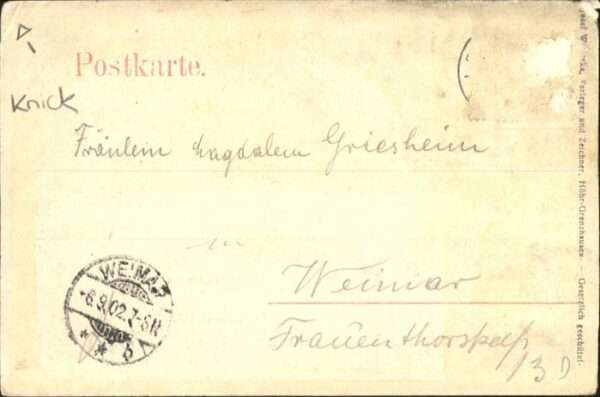 Postkarte.
Knick
Fräulein Magdalena Griesheim
in
Weimar
Frauenthorstraße
13 D
WEIMAR
-6.9.02.7-8N.
* * b
Verleger und Zeichner, Höhr-Grenzhausen — Gesetzlich geschützt.